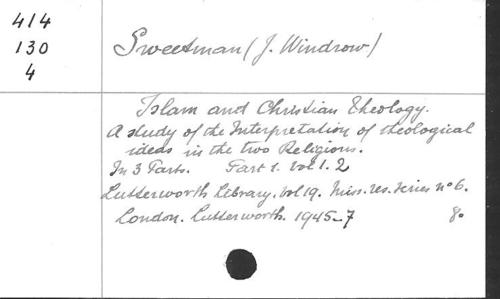 414
130
4
Sweetman (J. Windrow)
Islam and Christian Theology.
A study of the Interpretation of theological
ideas in the two Religions.
In 3 Parts. Part 1. Vol 1. 2
Lutterworth Library. Vol 19. Miss. res. series nº 6.
London. Lutterworth. 1945-7 8º